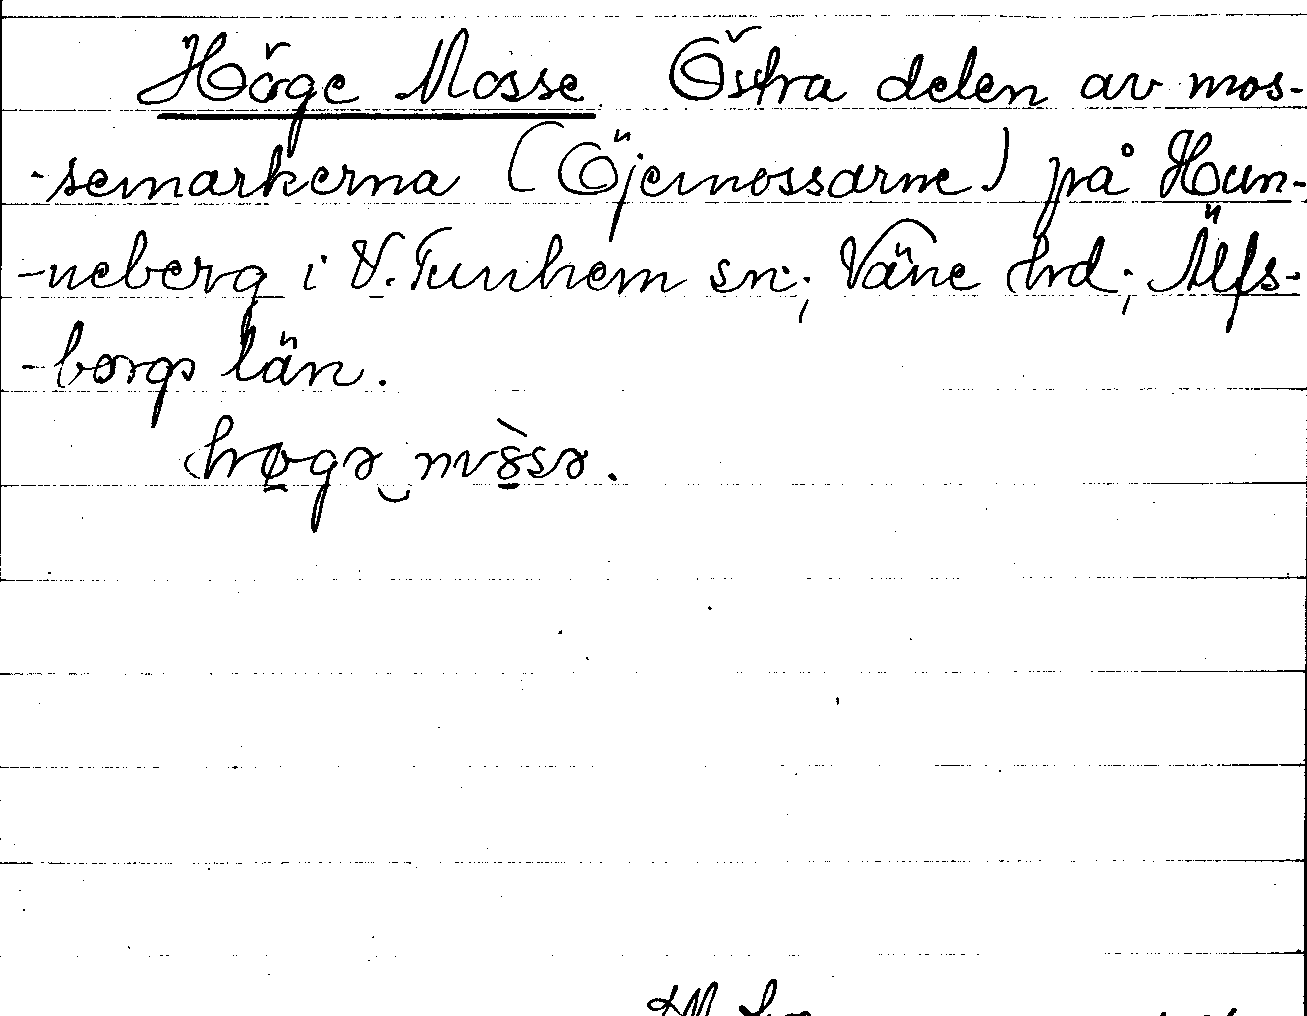 Höge Mosse Östra delen av mos-
-semarkerna (Öjemossarne) på Hun-
-neberg i V. Tunhem sn; Väne hd; Älfs-
-borgs län.